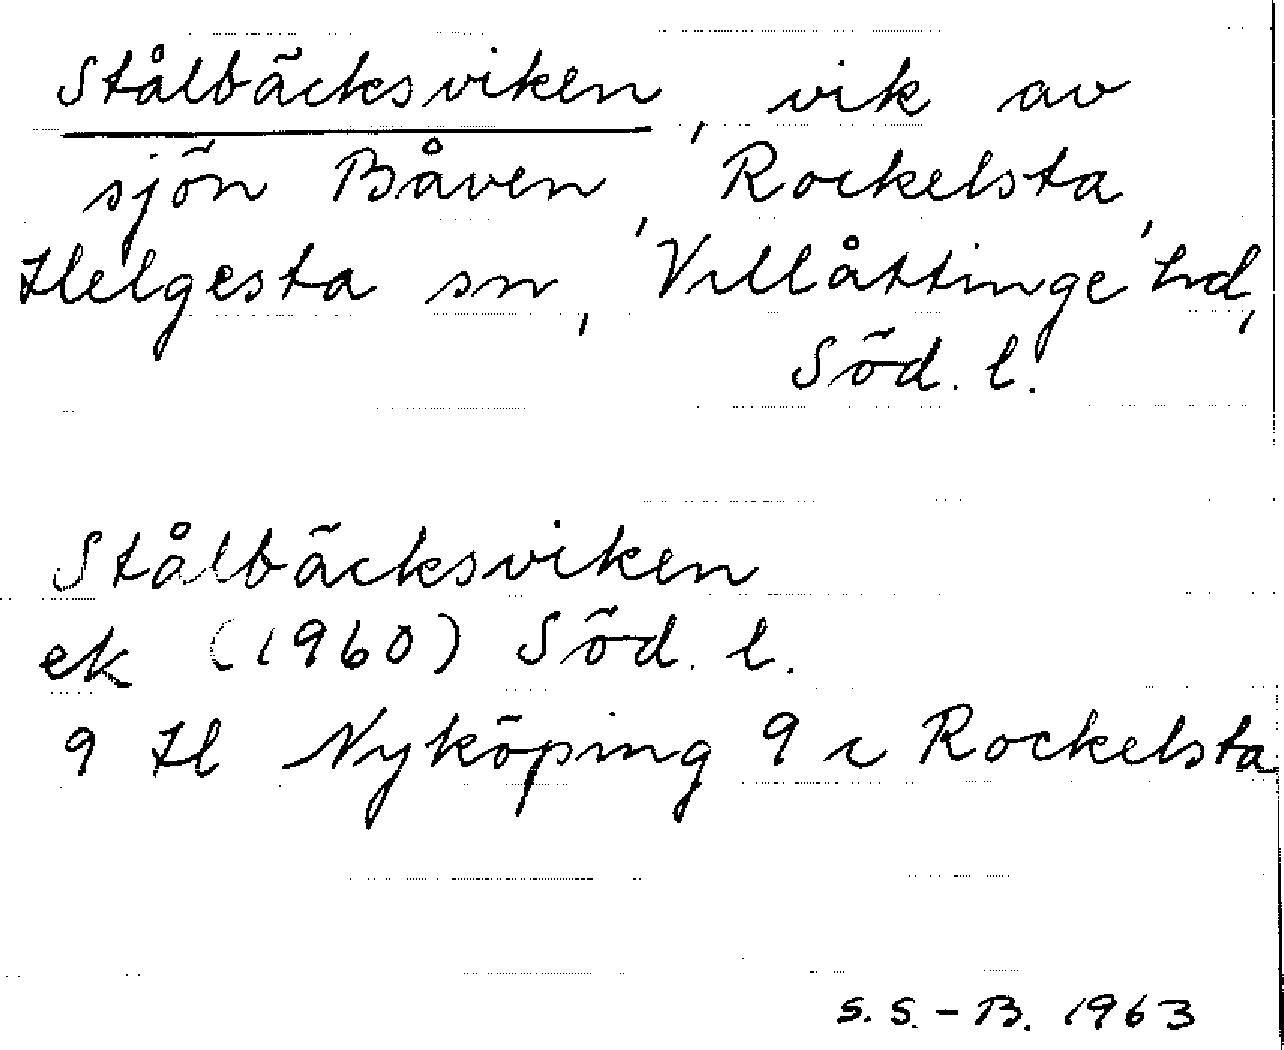 Stålbäcksviken, vik av
sjön Båven, Rockelsta,
Helgesta sn, Villåttinge hd,
Söd. l.
Stålbäcksviken
ek (1960) Söd. l.
9 H Nyköping 9 c Rockelsta
S. S. - B. 1963